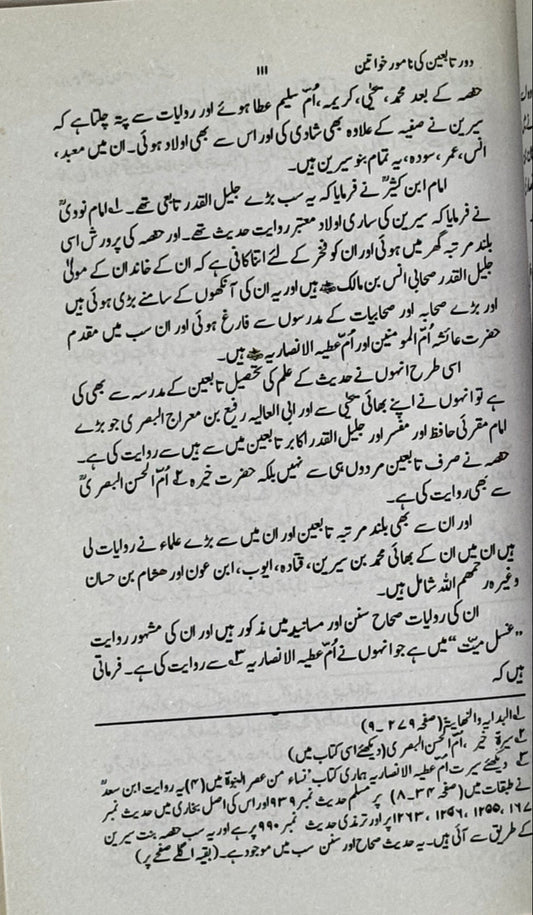 دور تابعین کی نامور خواتین
۱۱۱
حفصہ کے بعد محمد، یحیٰی، کریمہ، اُمّ سلیم عطا ہوئے اور روایات سے پتہ چلتا ہے کہ
سیرین نے صفیہ کے علاوہ بھی شادی کی اور اس سے بھی اولاد ہوئی۔ ان میں معبد،
انس، عمر، سودہ، یہ تمام بنو سیرین ہیں۔
امام ابن کثیرؒ نے فرمایا کہ یہ سب بڑے جلیل القدر تابعی تھے۔ ۱؎ امام نوویؒ
نے فرمایا کہ سیرین کی ساری اولاد معتبر روایت حدیث تھے۔ اور حفصہ کی پرورش اسی
بلند مرتبہ گھر میں ہوئی اور ان کو فخر کے لئے اتنا کافی ہے کہ ان کے خاندان کے مولیٰ
جلیل القدر صحابی انس بن مالک ؓ ہیں اور یہ ان کی آنکھوں کے سامنے بڑی ہوئی ہیں
اور بڑے صحابہ اور صحابیات کے مدرسوں سے فارغ ہوئی اور ان سب میں مقدم
حضرت عائشہ اُمّ المومنین اور اُمّ عطیہ الانصاریہ ؓ ہیں۔
اسی طرح انہوں نے حدیث کے علم کی تحصیل تابعین کے مدرسہ سے بھی کی
ہے تو انہوں نے اپنے بھائی یحیٰی سے اور ابی العالیہ رفیع بن معراج البصری جو بڑے
امام مقرئی حافظ اور مفسر اور جلیل القدر اکابر تابعین میں سے ہیں سے روایت کی ہے۔
حفصہ نے صرف تابعین مردوں ہی سے نہیں بلکہ حضرت خیرہ ۲؎ اُمّ الحسن البصریؒ
سے بھی روایت کی ہے۔
اور ان سے بھی بلند مرتبہ تابعین اور ان میں سے بڑے علماء نے روایات لی
ہیں ان میں ان کے بھائی محمد بن سیرین، قتادہ، ایوب، ابن عون اور ھشام بن حسان
وغیرہ رحمھم اللہ شامل ہیں۔
ان کی روایات صحاح سنن اور مسانید میں مذکور ہیں اور ان کی مشہور روایت
”غسل میّت“ میں ہے جو انہوں نے اُمّ عطیہ الانصاریہ ۳؎ سے روایت کی ہے۔ فرماتی
ہیں کہ
۱؎ البدایہ والنھایۃ (صفحہ ۲۷۹۔ ۹)
۲؎ سیرۃ خیر، اُمّ الحسن البصری (دیکھئے اسی کتاب میں)
۳؎ دیکھئے سیرت اُمّ عطیہ الانصاریہ ہماری کتاب ”نساء من عصر النبوۃ میں (۴) یہ روایت ابن سعدؒ
نے طبقات میں (صفحہ ۳۴۔ ۸) پر مسلم حدیث نمبر ۹۳۹ اور اس کی اصل بخاری میں حدیث نمبر
۱۶۷، ۱۲۵۵، ۱۲۵۶، ۱۲۶۳ پر اور ترمذی حدیث نمبر ۹۹۰ پر ہے اور یہ سب حفصہ بنت سیرین
کے طریق سے آئی ہیں۔ یہ حدیث صحاح اور سنن سب میں موجود ہے۔ (بقیہ اگلے صفحے پر)